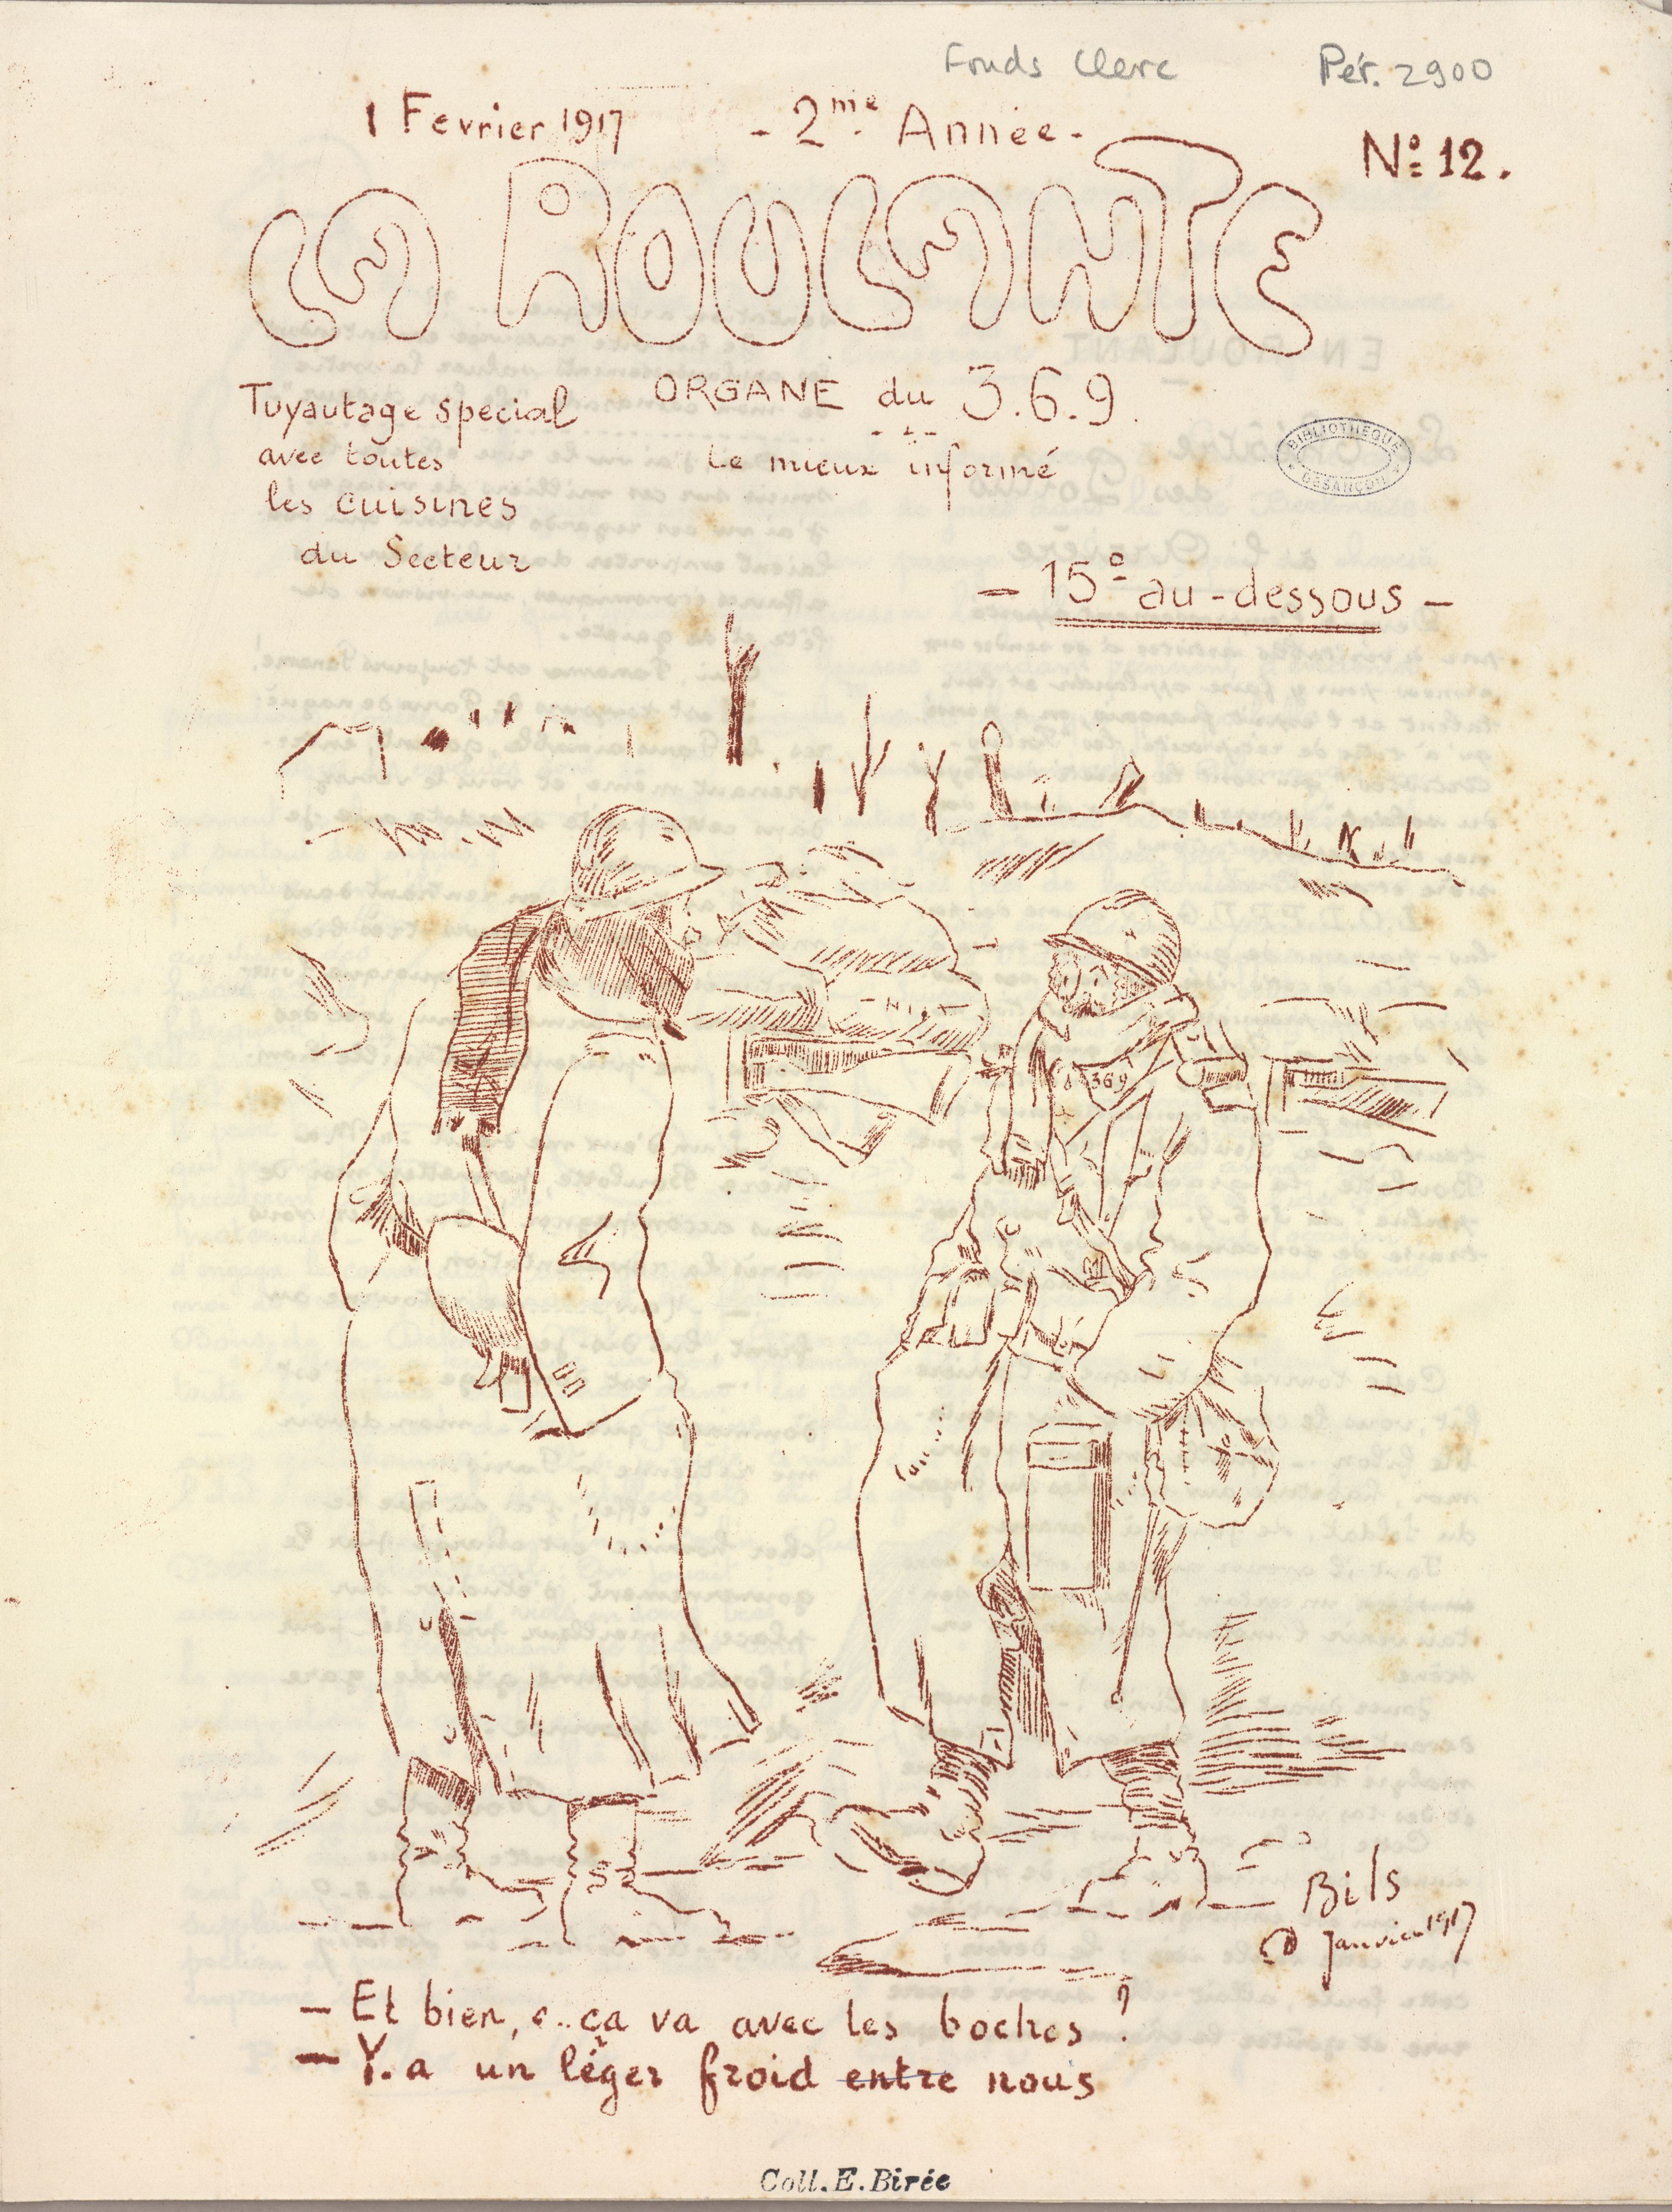 Fonds Clerc
Pér. 2900
1 Fevrier 1917
- 2me Année -
No 12.
LA ROULANTE
ORGANE du 3.6.9.
Le mieux informé
Tuyautage special
avec toutes
les cuisines
du Secteur
BIBLIOTHEQUE
BESANÇON
- 15° au-dessous -
369
Bils
Janvier 1917
- Et bien, c.. ça va avec les boches ?
- Y. a un léger froid entre nous
Coll. E. Birée